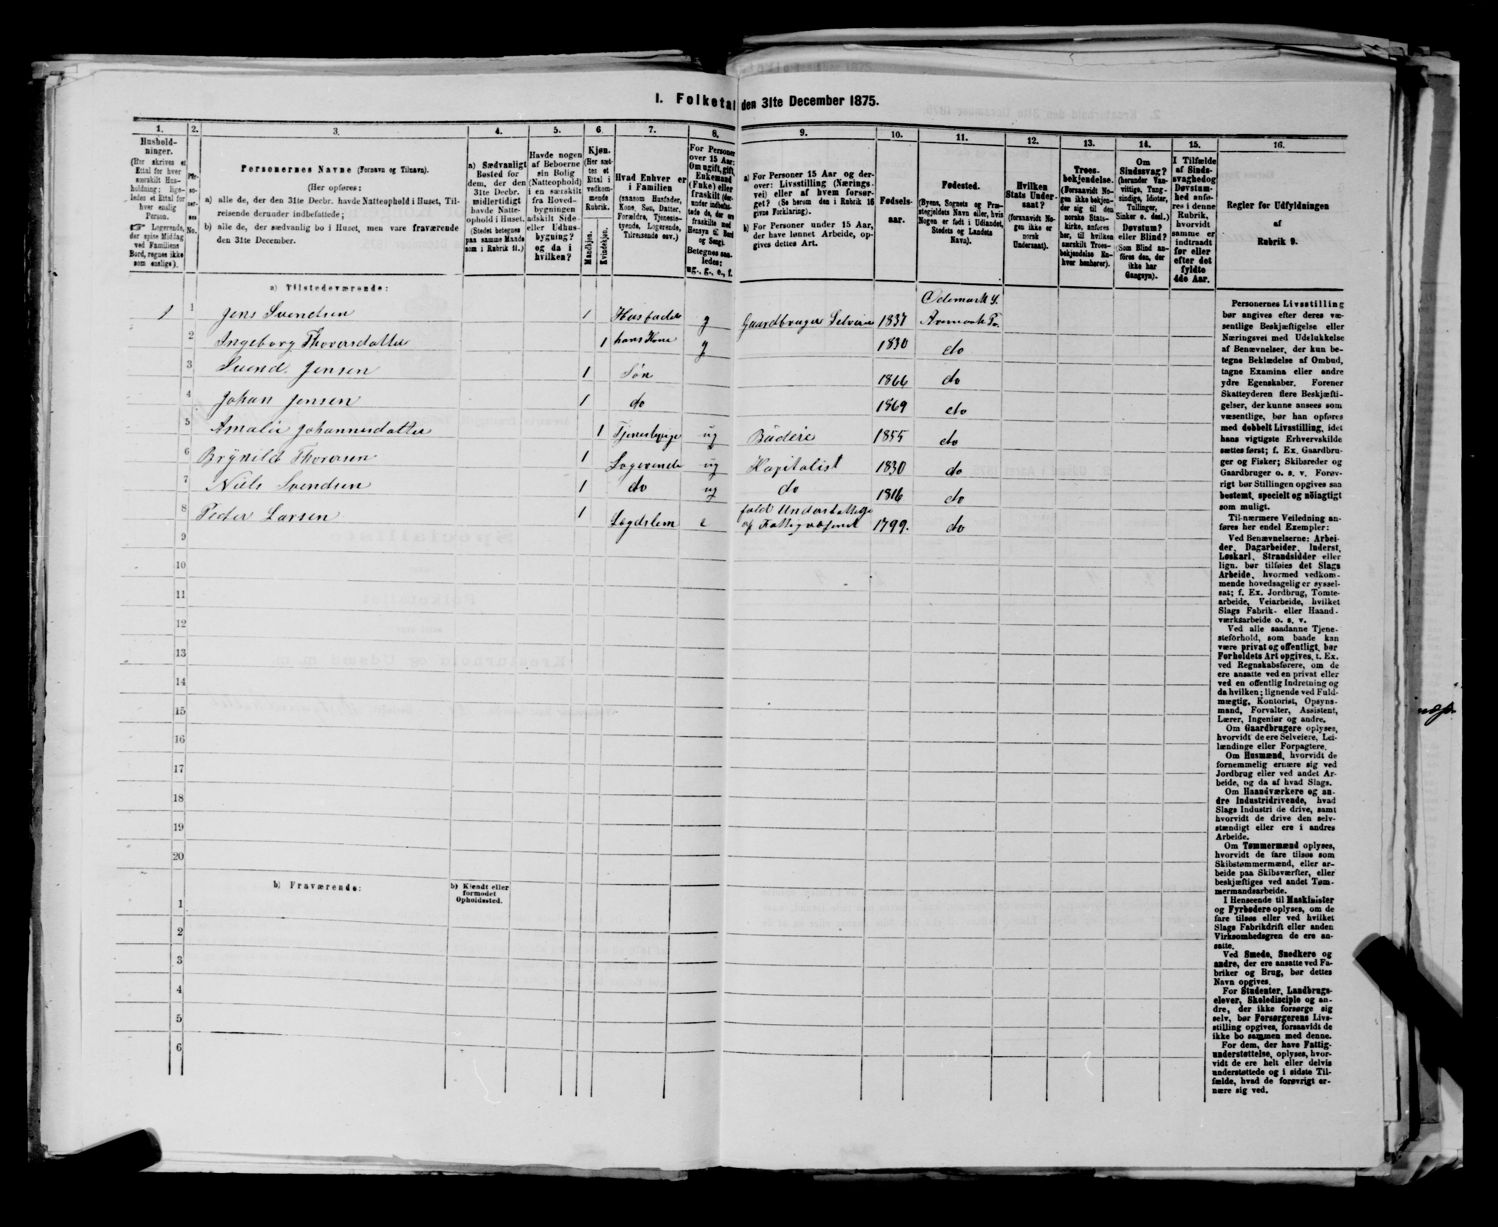 1. Folketal den 31te December 1875.
1.
Husholdninger.
(Her skrives et
Ettal for hver
særskilt Husholdning;
ligeledes et Ettal for
hver enslig
Person.
☞ Logerende,
der spise Middag
ved Familiens
Bord, regnes ikke
som enslige).
2.
Personernes
No.
3.
Personernes Navne (Fornavn og Tilnavn).
(Her opføres:
a) alle de, der den 31te Decbr. havde Natteophold i Huset, Tilreisende derunder indbefattede;
b) alle de, der sædvanlig bo i Huset, men vare fraværende
den 31te December.
4.
a) Sædvanligt
Bosted for
dem, der den
31te Decbr.
midlertidigt
havde Natteophold i Huset.
(Stedet betegnes
paa samme Maade
som i Rubrik 11.)
5.
Havde nogen
af Beboerne
sin Bolig
(Natteophold)
i en særskilt
fra Hovedbygningen
adskilt Side-
eller Udhusbygning?
og da i
hvilken?
6.
Kjøn.
(Her sættes et
Ettal i
vedkommende
Rubrik.
Mandkjøn.
Kvindekjøn.
7.
Hvad Enhver er
i Familien
(saasom Husfader,
Kone, Søn, Datter,
Forældre, Tjenestetyende, Logerende,
Tilreisende osv.)
8.
For Personer
over 15 Aar:
Om ugift, gift,
Enkemand
(Enke) eller
fraskilt
Betegnes saaledes:
ug., g., e., f.
9.
a) For Personer 15 Aar og derover: Livsstilling (Næringsvei) eller af hvem forsørget? (Se herom den i Rubrik 16
givne Forklaring).
b) For Personer under 15 Aar,
der have lønnet Arbeide, opgives dettes Art.
10.
Fødselsaar.
11.
Fødested.
(Byens, Sognets og Præstegjeldets Navn eller, hvis
Nogen er født i Udlandet,
Stedets og Landets
Navn).
12.
Hvilken
Stats Undersaat?
(forsaavidt Nogen ikke er
norsk
Undersaat).
13.
Troesbekjendelse.
(Forsaavidt Nogen ikke bekjender sig til den
norske Statskirke, anføres
her, til hvilken
særskilt Troesbekjendelse Enhver henhører).
14.
Om
Sindssvag?
(herunder Vanvittige, Tungsindige, Idioter,
Tullinger,
Sinker o. desl.)
Døvstum?
eller Blind?
(Som Blind anføres den, der
ikke har
Gangsyn).
15.
I Tilfælde
af Sindssvaghed og
Døvstumhed anføres i denne
Rubrik,
hvorvidt
samme er
indtraadt
før eller
efter det
fyldte
4de Aar.
16.
Regler for Udfyldningen
af
Rubrik 9.
a) Tilstedeværende:
1 1 Jens Svendsen 1 Husfader g Gaardbruger Selveier 1837 Ødemark S. Aremark Pr.
2 Ingeborg Thorersdatter 1 hans Kone g 1830 do
3 Svend Jensen 1 Søn 1866 do
4 Johan Jensen 1 do 1869 do
5 Amalie Johannesdatter 1 Tjenestepige ug Budeie 1855 do
6 Brynild Thorersen 1 Logerende ug Kapitalist 1830 do
7 Niels Svendsen 1 do ug do 1816 do
8 Peder Larsen 1 Lægdslem e fuld Understøttelse af Fattigvæsenet 1799. do
9
10
11
12
13
14
15
16
17
18
19
20
b) Fraværende:
b) Kjendt eller
formodet
Opholdssted.
1
2
3
4
5
6
Personernes Livsstilling
bør angives efter deres væsentlige Beskjæftigelse eller
Næringsvei med Udelukkelse
af Benævnelser, der kun betegne Beklædelse af Ombud,
tagne Examina eller andre
ydre Egenskaber. Forener
Skatteyderen flere Beskjæftigelser, der kunne ansees som
væsentlige, bør han opføres
med dobbelt Livsstilling, idet
hans vigtigste Erhvervskilde
sættes først; f. Ex. Gaardbruger og Fisker; Skibsreder og
Gaardbruger o. s. v. Forøvrigt bør Stillingen opgives saa
bestemt, specielt og nöiagtigt
som muligt.
Til nærmere Veiledning anføres her endel Exempler:
Ved Benævnelserne: Arbeider, Dagarbeider, Inderst,
Løskarl, Strandsidder eller
lign. bør tilføies det Slags
Arbeide, hvormed vedkommende hovedsagelig er sysselsat; f. Ex. Jordbrug, Tomtearbeide, Veiarbeide, hvilket
Slags Fabrik- eller Haandværksarbeide o. s. v.
Ved alle saadanne Tjenesteforhold, som baade kan
være privat og offentligt, bør
Forholdets Art opgives, t. Ex.
ved Regnskabsførere, om de
ere ansatte ved en privat eller
ved en offentlig Indretning og
da hvilken; lignende ved Fuldmægtig, Kontorist, Opsynsmand, Forvalter, Assistent,
Lærer, Ingeniør og andre.
Om Gaardbrugere oplyses,
hvorvidt de ere Selveiere, Leilændinge eller Forpagtere.
Om Husmænd, hvorvidt de
fornemmelig ernære sig ved
Jordbrug eller ved andet Arbeide, og da af hvad Slags.
Om Haandværkere og andre Industridrivende, hvad
Slags Industri de drive, samt
hvorvidt de drive den selvstændigt eller ere i andres
Arbeide.
Om Tømmermænd oplyses,
hvorvidt de fare tilsøs som
Skibstømmermænd, eller arbeide paa Skibsværfter, eller
beskjæftiges ved andet Tømmermandsarbeide.
I Henseende til Maskinister
og Fyrbødere oplyses, om de
fare tilsøs eller ved hvilket
Slags Fabrikdrift eller anden
Virksomhedsgren de ere ansatte.
Ved Smede, Snedkere og
andre, der ere ansatte ved Fabriker og Brug, bør dettes
Navn opgives.
For Studenter, Landbrugselever, Skoledisciple og andre, der ikke forsørge sig
selv, bør Forsørgerens Livsstilling opgives, forsaavidt de
ikke bo sammen med denne.
For dem, der have Fattigunderstøttelse, oplyses, hvorvidt de ere helt eller delvis
understøttede og i sidste Tilfælde, hvad de forøvrigt ernære sig ved.